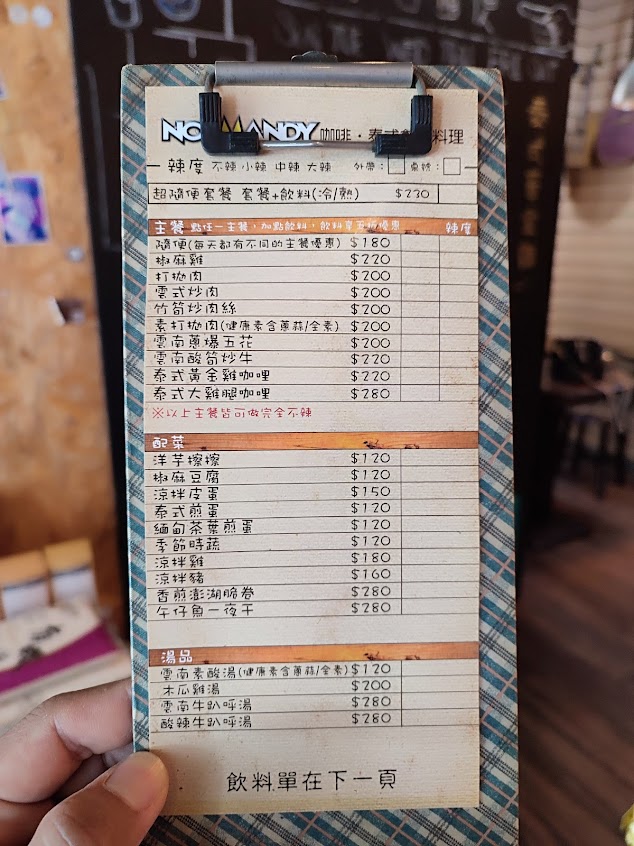 NORMANDY 咖啡·泰式 料理
辣度 不辣 小辣 中辣 大辣 外帶: 桌號:
超隨便套餐 套餐+飲料(冷/熱) $230
主餐 點任一主餐,加點飲料,飲料享五折優惠 辣度
隨便(每天都有不同的主餐優惠) $180
椒麻雞 $220
打拋肉 $200
雲式炒肉 $200
竹筍炒肉絲 $200
素打拋肉(健康素含蔥蒜/全素) $200
雲南蔥爆五花 $200
雲南酸筍炒牛 $220
泰式黃金雞咖哩 $220
泰式大雞腿咖哩 $280
※以上主餐皆可做完全不辣
配菜
洋芋擦擦 $120
椒麻豆腐 $120
涼拌皮蛋 $150
泰式煎蛋 $120
緬甸茶葉煎蛋 $120
季節時蔬 $120
涼拌雞 $180
涼拌豬 $160
香煎澎湖脆卷 $280
午仔魚一夜干 $280
湯品
雲南素酸湯(健康素含蔥蒜/全素) $120
木瓜雞湯 $200
雲南牛趴呼湯 $280
酸辣牛趴呼湯 $280
飲料單在下一頁